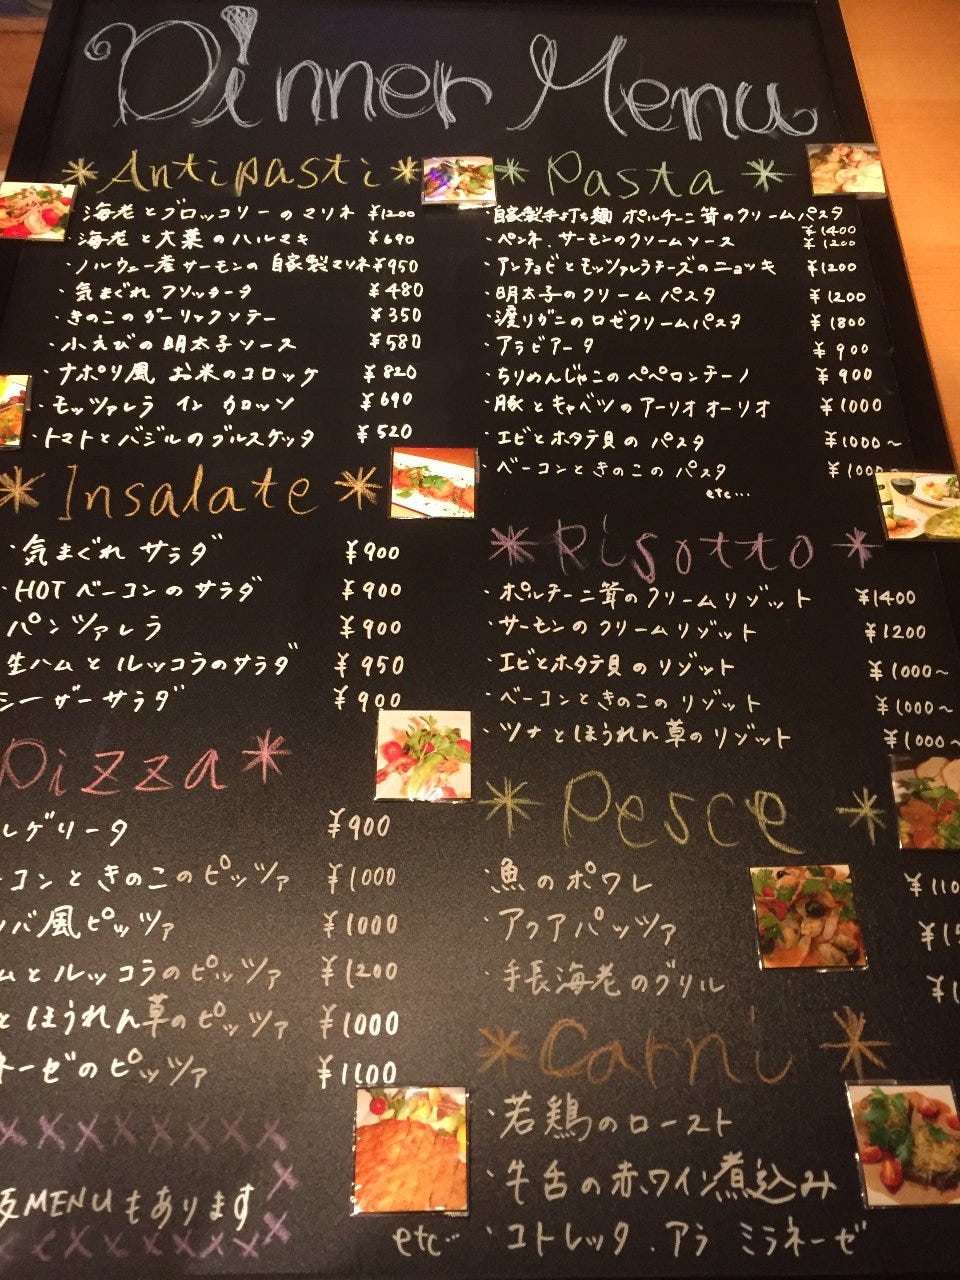 Dinner Menu
Antipasti
海老とブロッコリーのマリネ ¥1200
海老と大葉のハルマキ ¥690
ノルウェー産サーモンの自家製マリネ ¥950
気まぐれフリッタータ ¥480
きのこのガーリックソテー ¥350
小えびの明太子ソース ¥580
ナポリ風 お米のコロッケ ¥820
モッツァレラ イン カロッツ ¥690
トマトとバジルのブルスケッタ ¥520
Insalate
気まぐれサラダ ¥900
HOTベーコンのサラダ ¥900
パンツァレラ ¥900
生ハムとルッコラのサラダ ¥950
シーザーサラダ ¥900
Pizza
ルゲリータ ¥900
ーコンときのこのピッツァ ¥1000
風ピッツァ ¥1000
ムとルッコラのピッツァ ¥1200
とほうれん草のピッツァ ¥1000
ネーゼのピッツァ ¥1100
MENUもあります
Pasta
・自家製手打ち麺 ポルチーニ茸のクリームパスタ
¥1400
・ペンネ、サーモンのクリームソース ¥1200
・アンチョビとモッツァレラチーズのニョッキ ¥1200
・明太子のクリームパスタ ¥1200
・渡りガニのロゼクリームパスタ ¥1800
・アラビアータ ¥900
・ちりめんじゃこのペペロンチーノ ¥900
・豚とキャベツのアーリオオーリオ ¥1000
・エビとホタテ貝のパスタ ¥1000~
・ベーコンときのこのパスタ ¥1000~
etc…
Risotto
・ポルチーニ茸のクリームリゾット ¥1400
・サーモンのクリームリゾット ¥1200
・エビとホタテ貝のリゾット ¥1000~
・ベーコンときのこのリゾット ¥1000~
・ツナとほうれん草のリゾット ¥1000~
Pesce
・魚のポワレ
・アクアパッツァ
・手長海老のグリル
Carni
・若鶏のロースト
・牛舌の赤ワイン煮込み
・コトレッタ.アラ ミラネーゼ
etc…